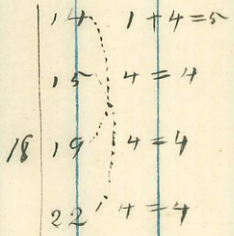 14 1+4=5
15 4=4
18 19 4=4
22 4=4